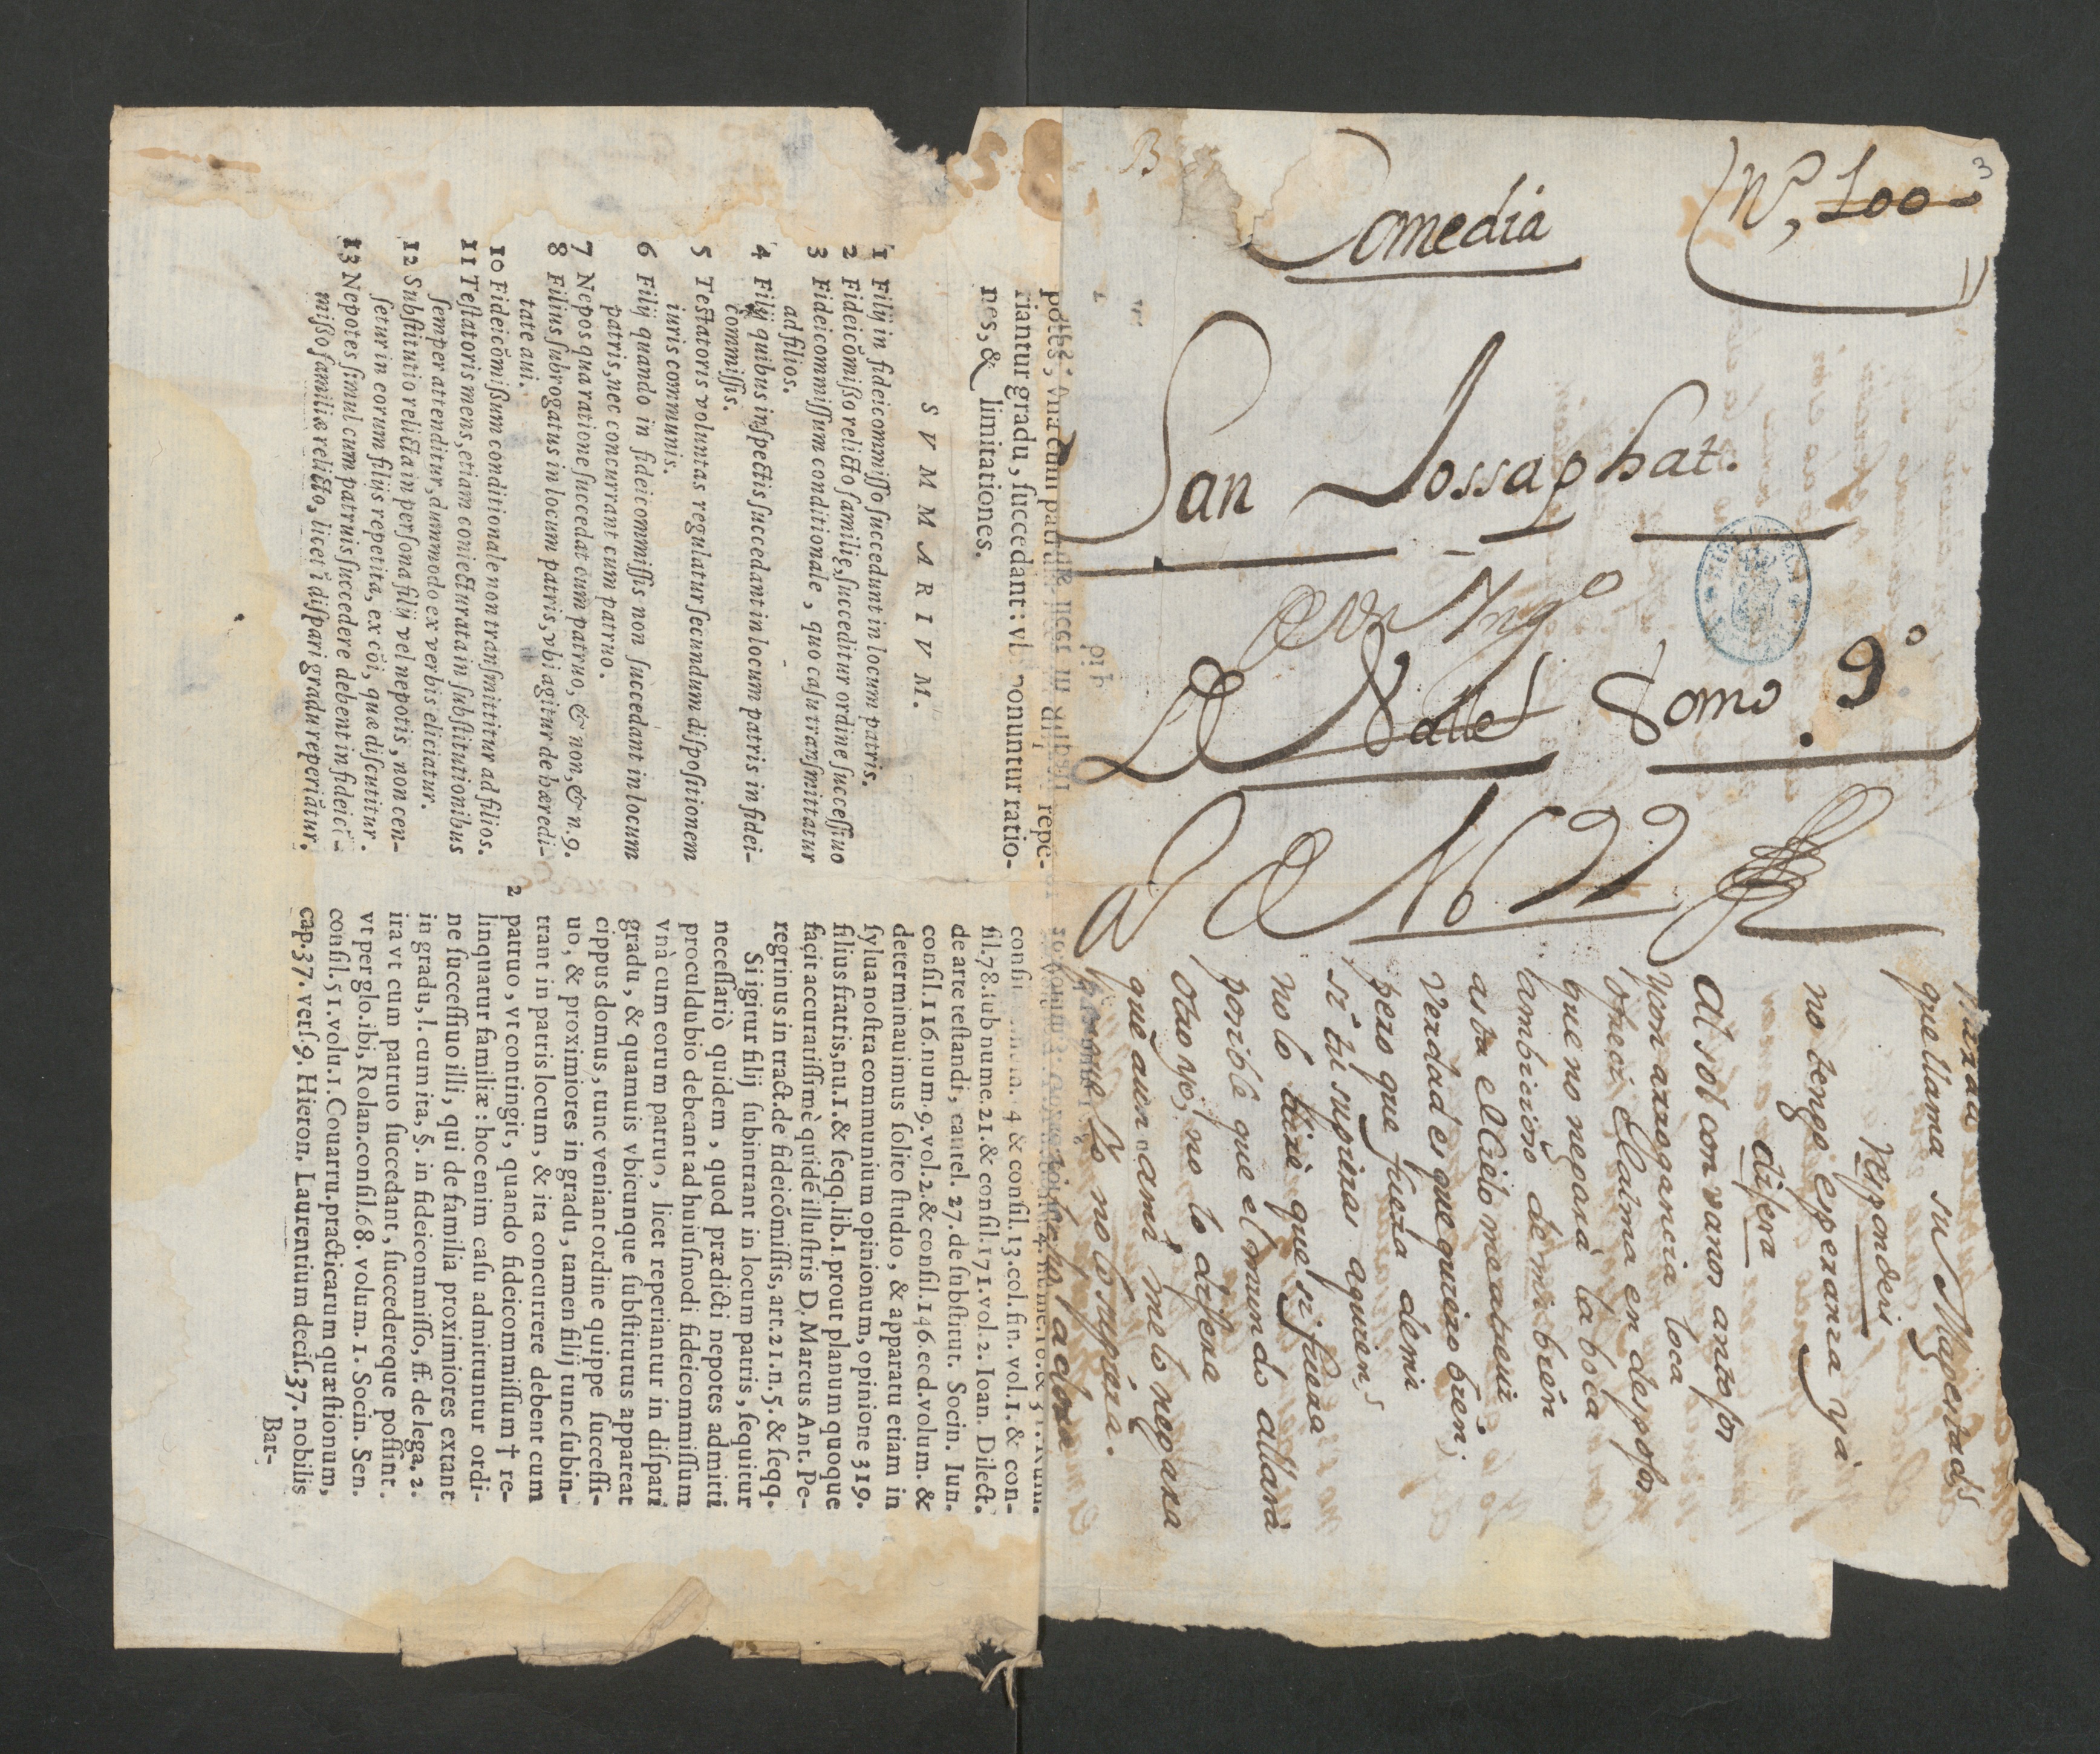 potes, vna cum patruis licet in dispari repe-
riantur gradu, succedant: vbi ponuntur ratio-
nes, & limitationes.
SVMMARIVM.
1 Filij in fideicommisso succedunt in locum patris.
2 Fideicõmisso relicto familię, succeditur ordine successiuo
3 Fideicommissum conditionale, quo casu transmittatur
ad filios.
4 Filij quibus inspectis succedant in locum patris in fidei-
commissis.
5 Testatoris voluntas regulatur secundum dispositionem
iuris communis.
6 Filij quando in fideicommissis non succedant in locum
patris, nec concurrant cum patruo.
7 Nepos qua ratione succedat cum patruo, & non, & n.9.
8 Filius subrogatus in locum patris, vbi agitur de hæredi-
tate aui.
10 Fideicõmissum conditionale non transmittitur ad filios.
11 Testatoris mens, etiam coniecturata in substitutionibus
semper attenditur, dummodo ex verbis eliciatur.
12 Substitutio relicta in persona filij vel nepotis, non cen-
setur in eorum filijs repetita, ex cõi, quæ discutitur.
13 Nepotes simul cum patruis succedere debent in fideicõ-
misso familiæ relicto, licet ĩ dispari gradu reperiãtur.
4 & consil.13.col.fin. vol.1. & con-
sil.78.sub nume.21.& consil.171.vol.2. Ioan. Dilect.
de arte testandi, cautel. 27. de substitut. Socin. Iun.
consil.116.num.9.vol.2.& consil.146.eod.volum. &
determinauimus solito studio, & apparatu etiam in
sylua nostra communium opinionum, opinione 319.
filius fratris, nu.1.& seqq.lib.1.prout planum quoque
facit accuratissimè quidẽ illustris D. Marcus Ant. Pe-
regrinus in tract.de fideicõmissis, art.21.n.5.& seqq.
Si igitur filij subintrant in locum patris, sequitur
necessariò quidem, quod prædicti nepotes admitti
proculdubio debeant ad huiusmodi fideicommissum
vnà cum eorum patruo, licet reperiantur in dispari
gradu, & quamuis vbicunque substitutus appareat
cippus domus, tunc veniant ordine quippe successi-
uo, & proximiores in gradu, tamen filij tunc subin-
trant in patris locum, & ita concurrere debent cum
2 patruo, vt contingit, quando fideicommissum † re-
linquatur familiæ: hoc enim casu admittuntur ordi-
ne successiuo illi, qui de familia proximiores extant
in gradu, l. cum ita, §. in fideicommisso, ff. de lega. 2.
ira vt cum patruo succedant, succedereque possint.
vt per glo.ibi, Rolan.consil.68. volum. 1. Socin. Sen.
consil.51.volu.1.Couarru.practicarum quæstionum,
cap.37. vers.9. Hieron. Laurentium decis.37. nobilis
Bar-
B
3
Comedia
Nº, 100
San Jossaphat.
De Un Ingº
De Valle Tomo 9º
N 22
que llama su Magestad
respondeis
no tengo esperanza ya
disera
Al sol con vanos antojos
y con arrogancia loca
ofreci el alma en despojos
que no negarà la boca
la ambicioñ de mi bien
asta el Cielo me atreui
verdad es que quiero bien;
pero que fuera de mi
si tu supieras a quien
no lo dixe que si fuera
posible que el mundo allarà
otro yo; no lo dijera
que aun a mi me lo negara
porque lo no lo supiera.